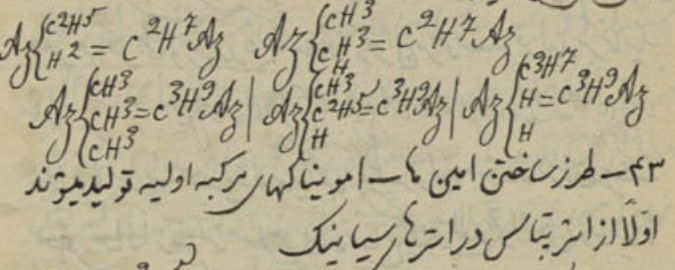 Az{C²H⁵ H² = C²H⁷Az   Az{CH³ CH³ H = C²H⁷Az
Az{CH³ CH³ CH³ = C³H⁹Az | Az{CH³ C²H⁵ H = C³H⁹Az | Az{C³H⁷ H H = C³H⁹Az
۴۳ – طرز ساختن امین ها – امونیاکهای مرکبه اولیه تولید میشوند
اوّلاً از اثر پتاس در اترهای سیانیک